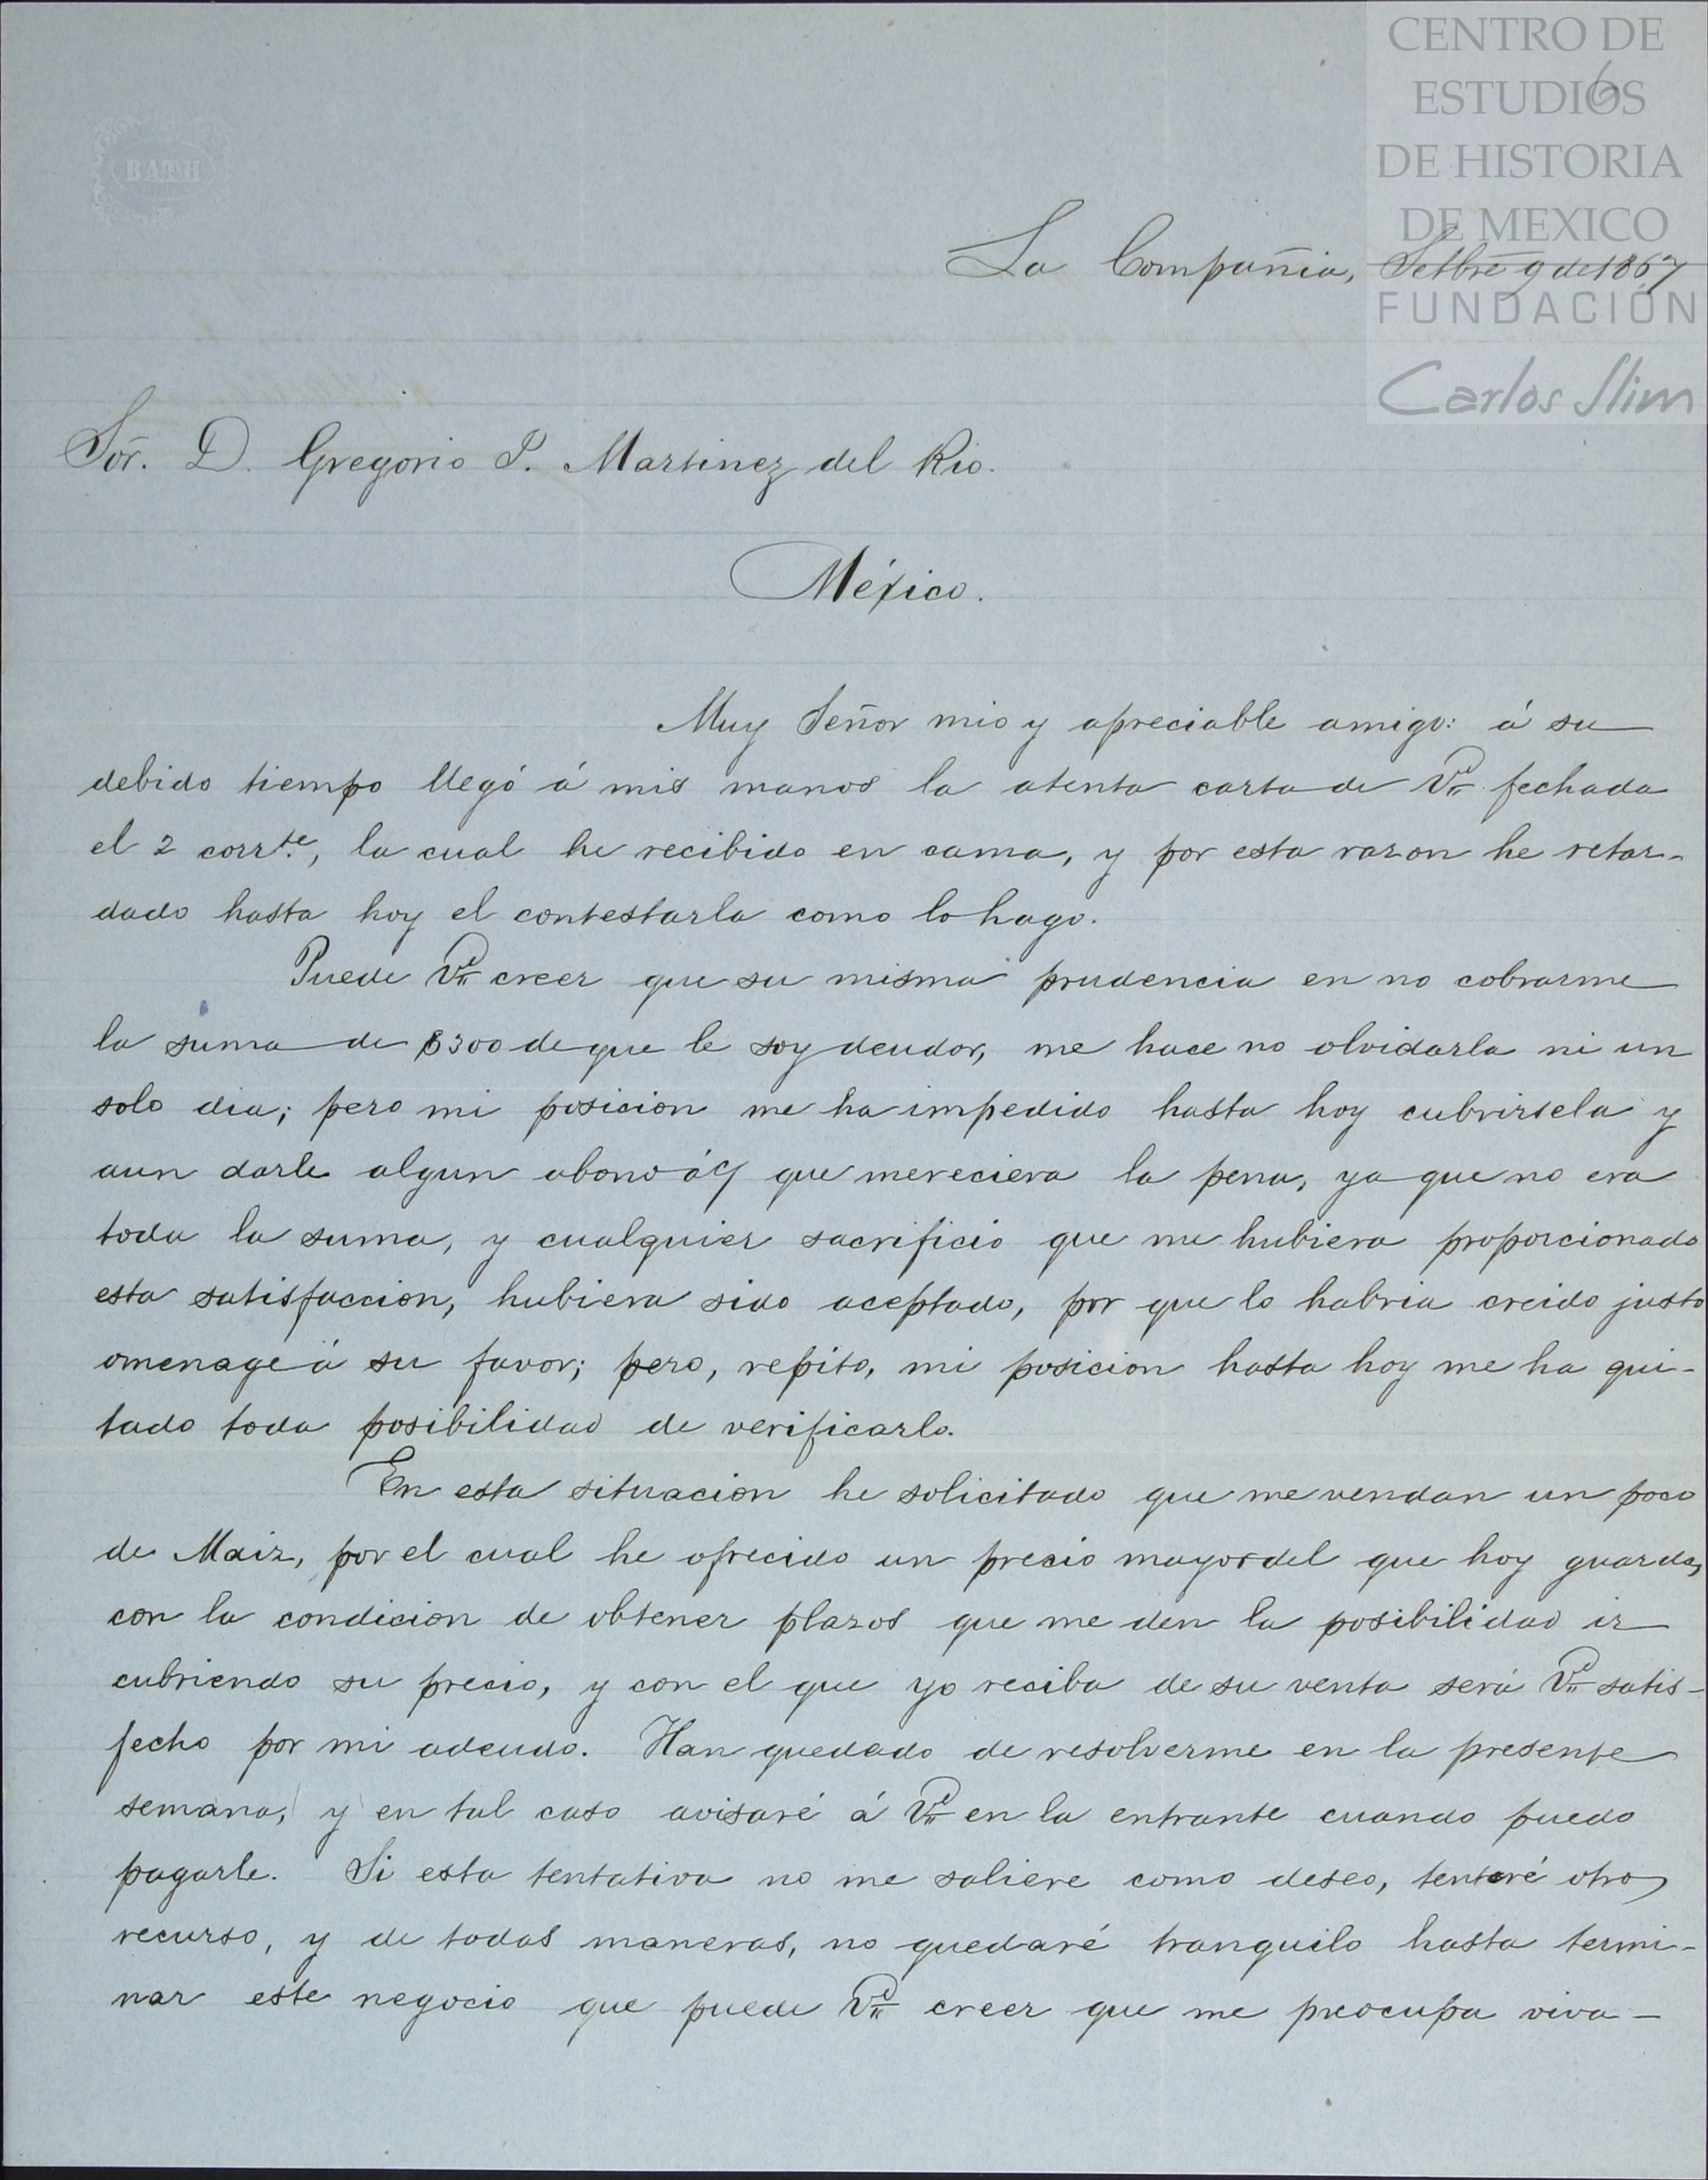 CENTRO DE
ESTUDIOS
DE HISTORIA
DE MEXICO
FUNDACIÓN
Carlos Slim
6
BATH
La Compañia, Setbre 9 de 1867
Sör. D. Gregorio P. Martinez del Rio.
México.
Muy Señor mio y apreciable amigo: á su
debido tiempo llegó á mis manos la atenta carta de Vd. fechada
el 2 corrte., la cual he recibido en cama, y por esta razon he retar-
dado hasta hoy el contestarla como lo hago.
Puede Vd. creer que su misma prudencia en no cobrarme
la suma de $300 de que le soy deudor, me hace no olvidarla ni un
solo dia; pero mi posicion me ha impedido hasta hoy cubrirsela y
aun darle algun abono á que mereciera la pena, ya que no era
toda la suma, y cualquier sacrificio que me hubiera proporcionado
esta satisfaccion, hubiera sido aceptado, por que lo habria creido justo
omenage á su favor; pero, repito, mi posicion hasta hoy me ha qui-
tado toda posibilidad de verificarlo.
En esta situacion he solicitado que me vendan un poco
de Maiz, por el cual he ofrecido un precio mayor del que hoy guarda,
con la condicion de obtener plazos que me den la posibilidad ir
cubriendo su precio, y con el que yo reciba de su venta será Vd. satis-
fecho por mi adeudo. Han quedado de resolverme en la presente
semana, y en tal caso avisaré á Vd. en la entrante cuando puedo
pagarle. Si esta tentativa no me saliere como deseo, tentaré otro
recurso, y de todas maneras, no quedaré tranquilo hasta termi-
nar este negocio que puede Vd. creer que me preocupa viva-